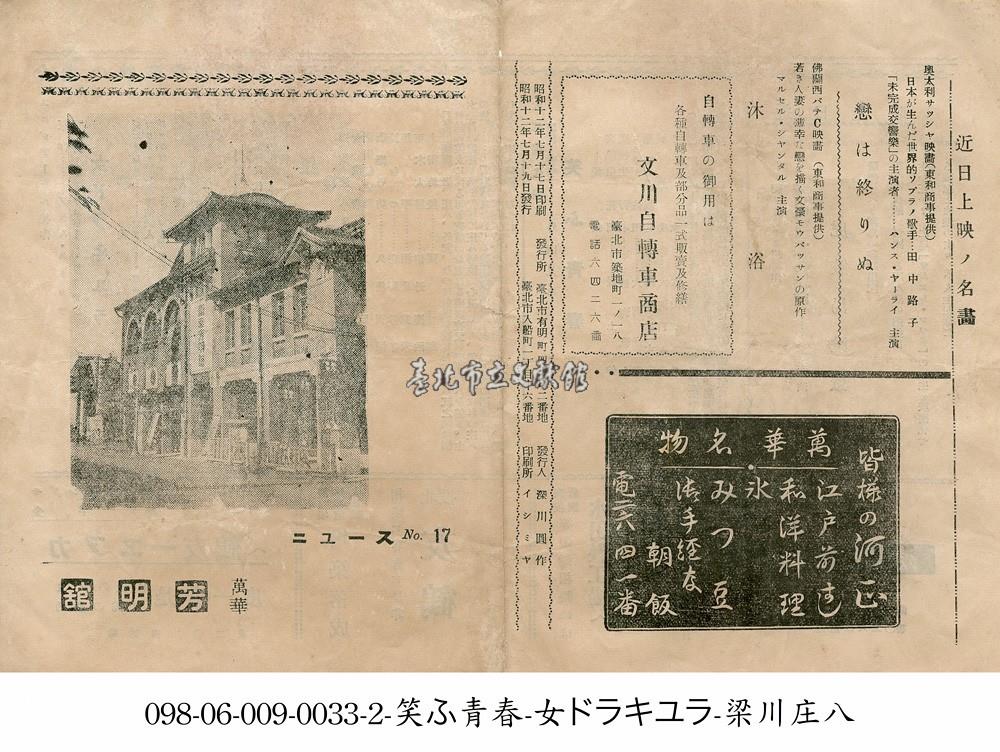 近日上映ノ名畫
奥太利サッシャ映畫(東和商事提供)
日本が生んだ世界的ソプラノ歌手…田中路子
「未完成交響樂」の主演者……ハンス・ヤーライ 主演
戀は終りぬ
佛蘭西パテC映畫(東和商事提供)
若き人妻の薄幸な戀を描く文豪モウパッサンの原作
マルセル・シヤンタル 主演
沐浴
自轉車の御用は
各種自轉車及部分品一式販賣及修繕
文川自轉車商店
臺北市築地町一ノ一八
電話六四二六番
皆様の河正
萬華名物
江戸前
和洋料理
氷
みつ豆
朝飯
電二六四一番
昭和十二年七月十七日印刷
昭和十二年七月十九日發行
發行所 臺北市有明町
臺北市入船町一丁
二番地
六番地
發行人 深川圓作
印刷所 イシミヤ
ニュース No. 17
萬華
芳明舘
臺北市立文獻館
098-06-009-0033-2-笑ふ青春-女ドラキユラ-梁川庄八